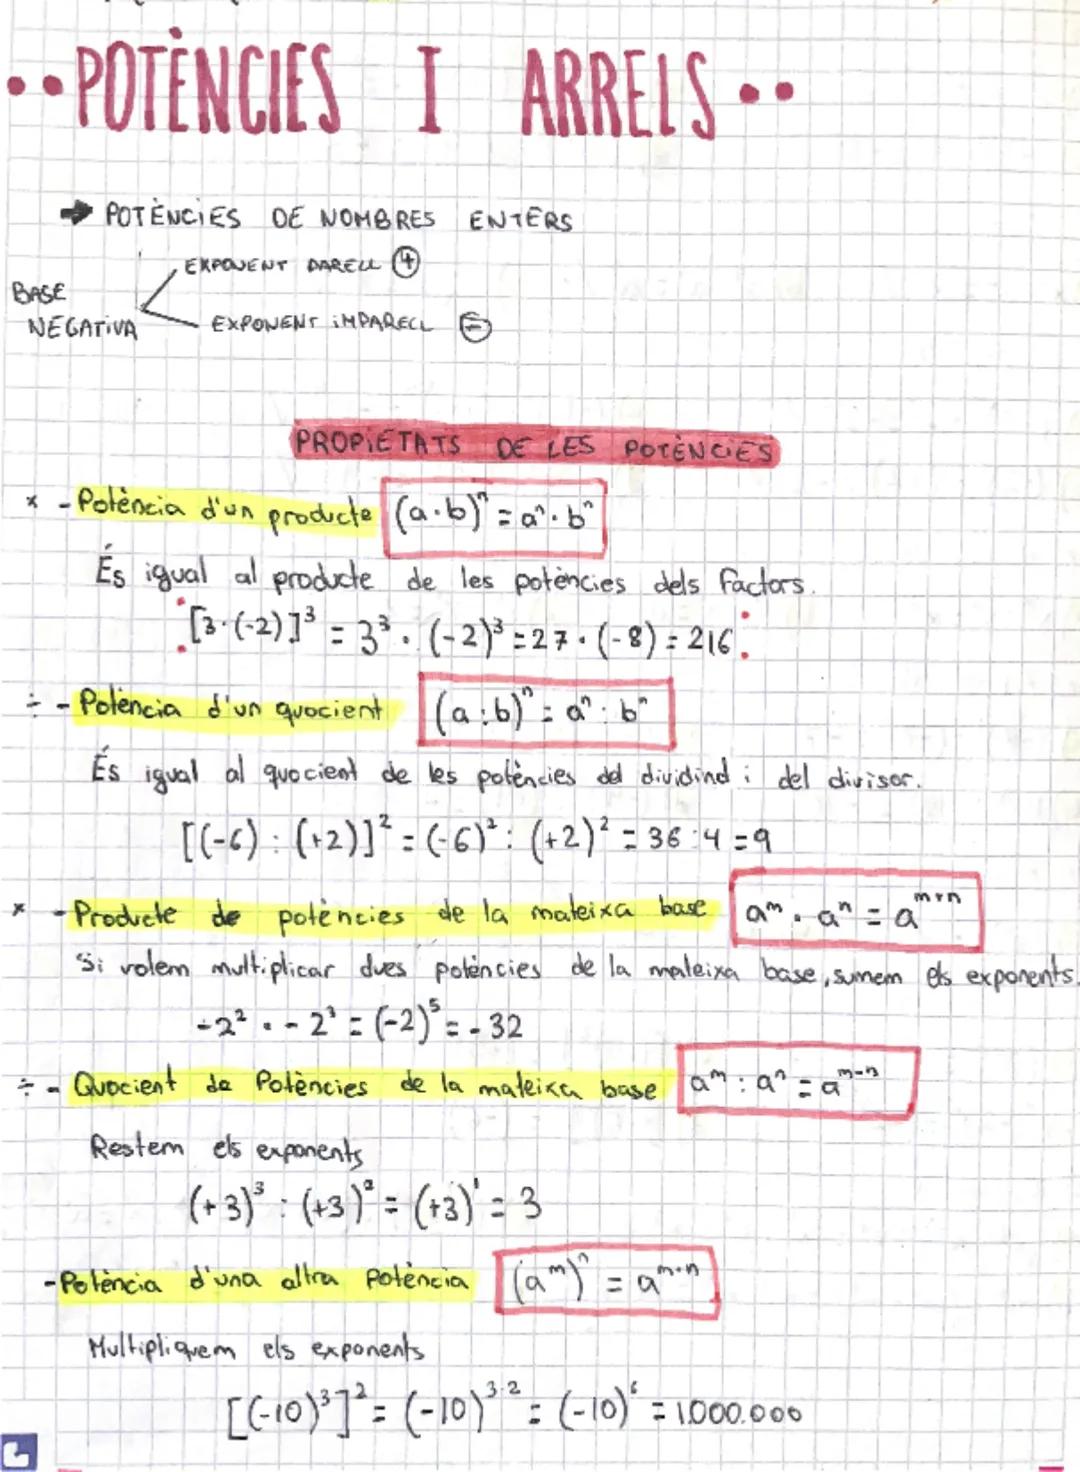 •• POTÈNCIES I ARRELS ••
→ POTÈNCIES DE NOMBRES ENTERS
EXPONENT PARELL (+)
BASE NEGATIVA
EXPONENT IMPARELL (-)
PROPIETATS DE LES POTÈNCIES
x - Potència d'un producte (a·b)ⁿ = aⁿ·bⁿ
És igual al producte de les potències dels factors.
[3·(-2)]³ = 3³·(-2)³ = 27·(-8) = 216
÷ - Potència d'un quocient (a:b)ⁿ = aⁿ:bⁿ
És igual al quocient de les potències del dividind i del divisor.
[(-6):(+2)]² = (-6)²:(+2)² = 36:4 = 9
x - Producte de potències de la mateixa base aᵐ·aⁿ = aᵐ⁺ⁿ
Si volem multiplicar dues potències de la mateixa base, sumem els exponents.
-2²·-2³ = (-2)⁵ = -32
÷ - Quocient de Potències de la mateixa base aᵐ:aⁿ = aᵐ⁻ⁿ
Restem els exponents
(+3)³:(+3)² = (+3)¹ = 3
- Potència d'una altra Potència (aᵐ)ⁿ = aᵐ·ⁿ
Multipliquem els exponents
[(-10)³]² = (-10)³·² = (-10)⁶ = 1.000.000